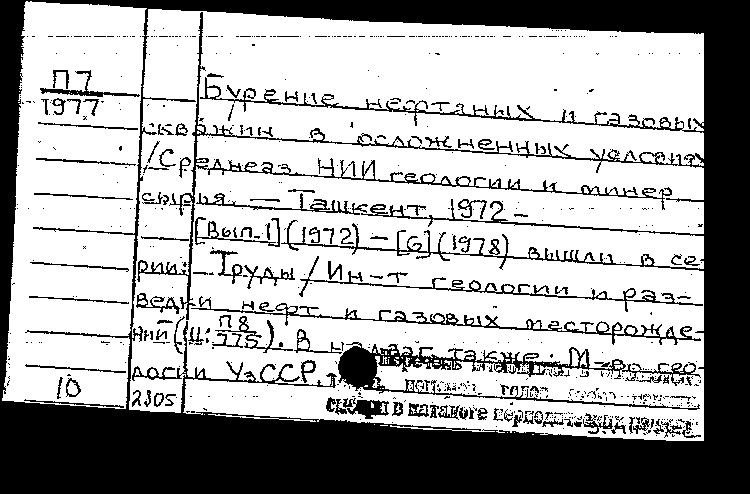 П7
1977
Бурение нефтяных и газовых
скважин в осложненных условиях
/Среднеаз. НИИ геологии и минер.
сырья. — Ташкент, 1972 –
[Вып.1](1972) – [6](1978) вышли в се-
рии: Труды/Ин-т геологии и раз-
ведки нефт. и газовых месторожде-
ний (Ш: П8/775). В также: М-во гео-
логии УзССР.
перечень
10
2805
в каталоге периодических